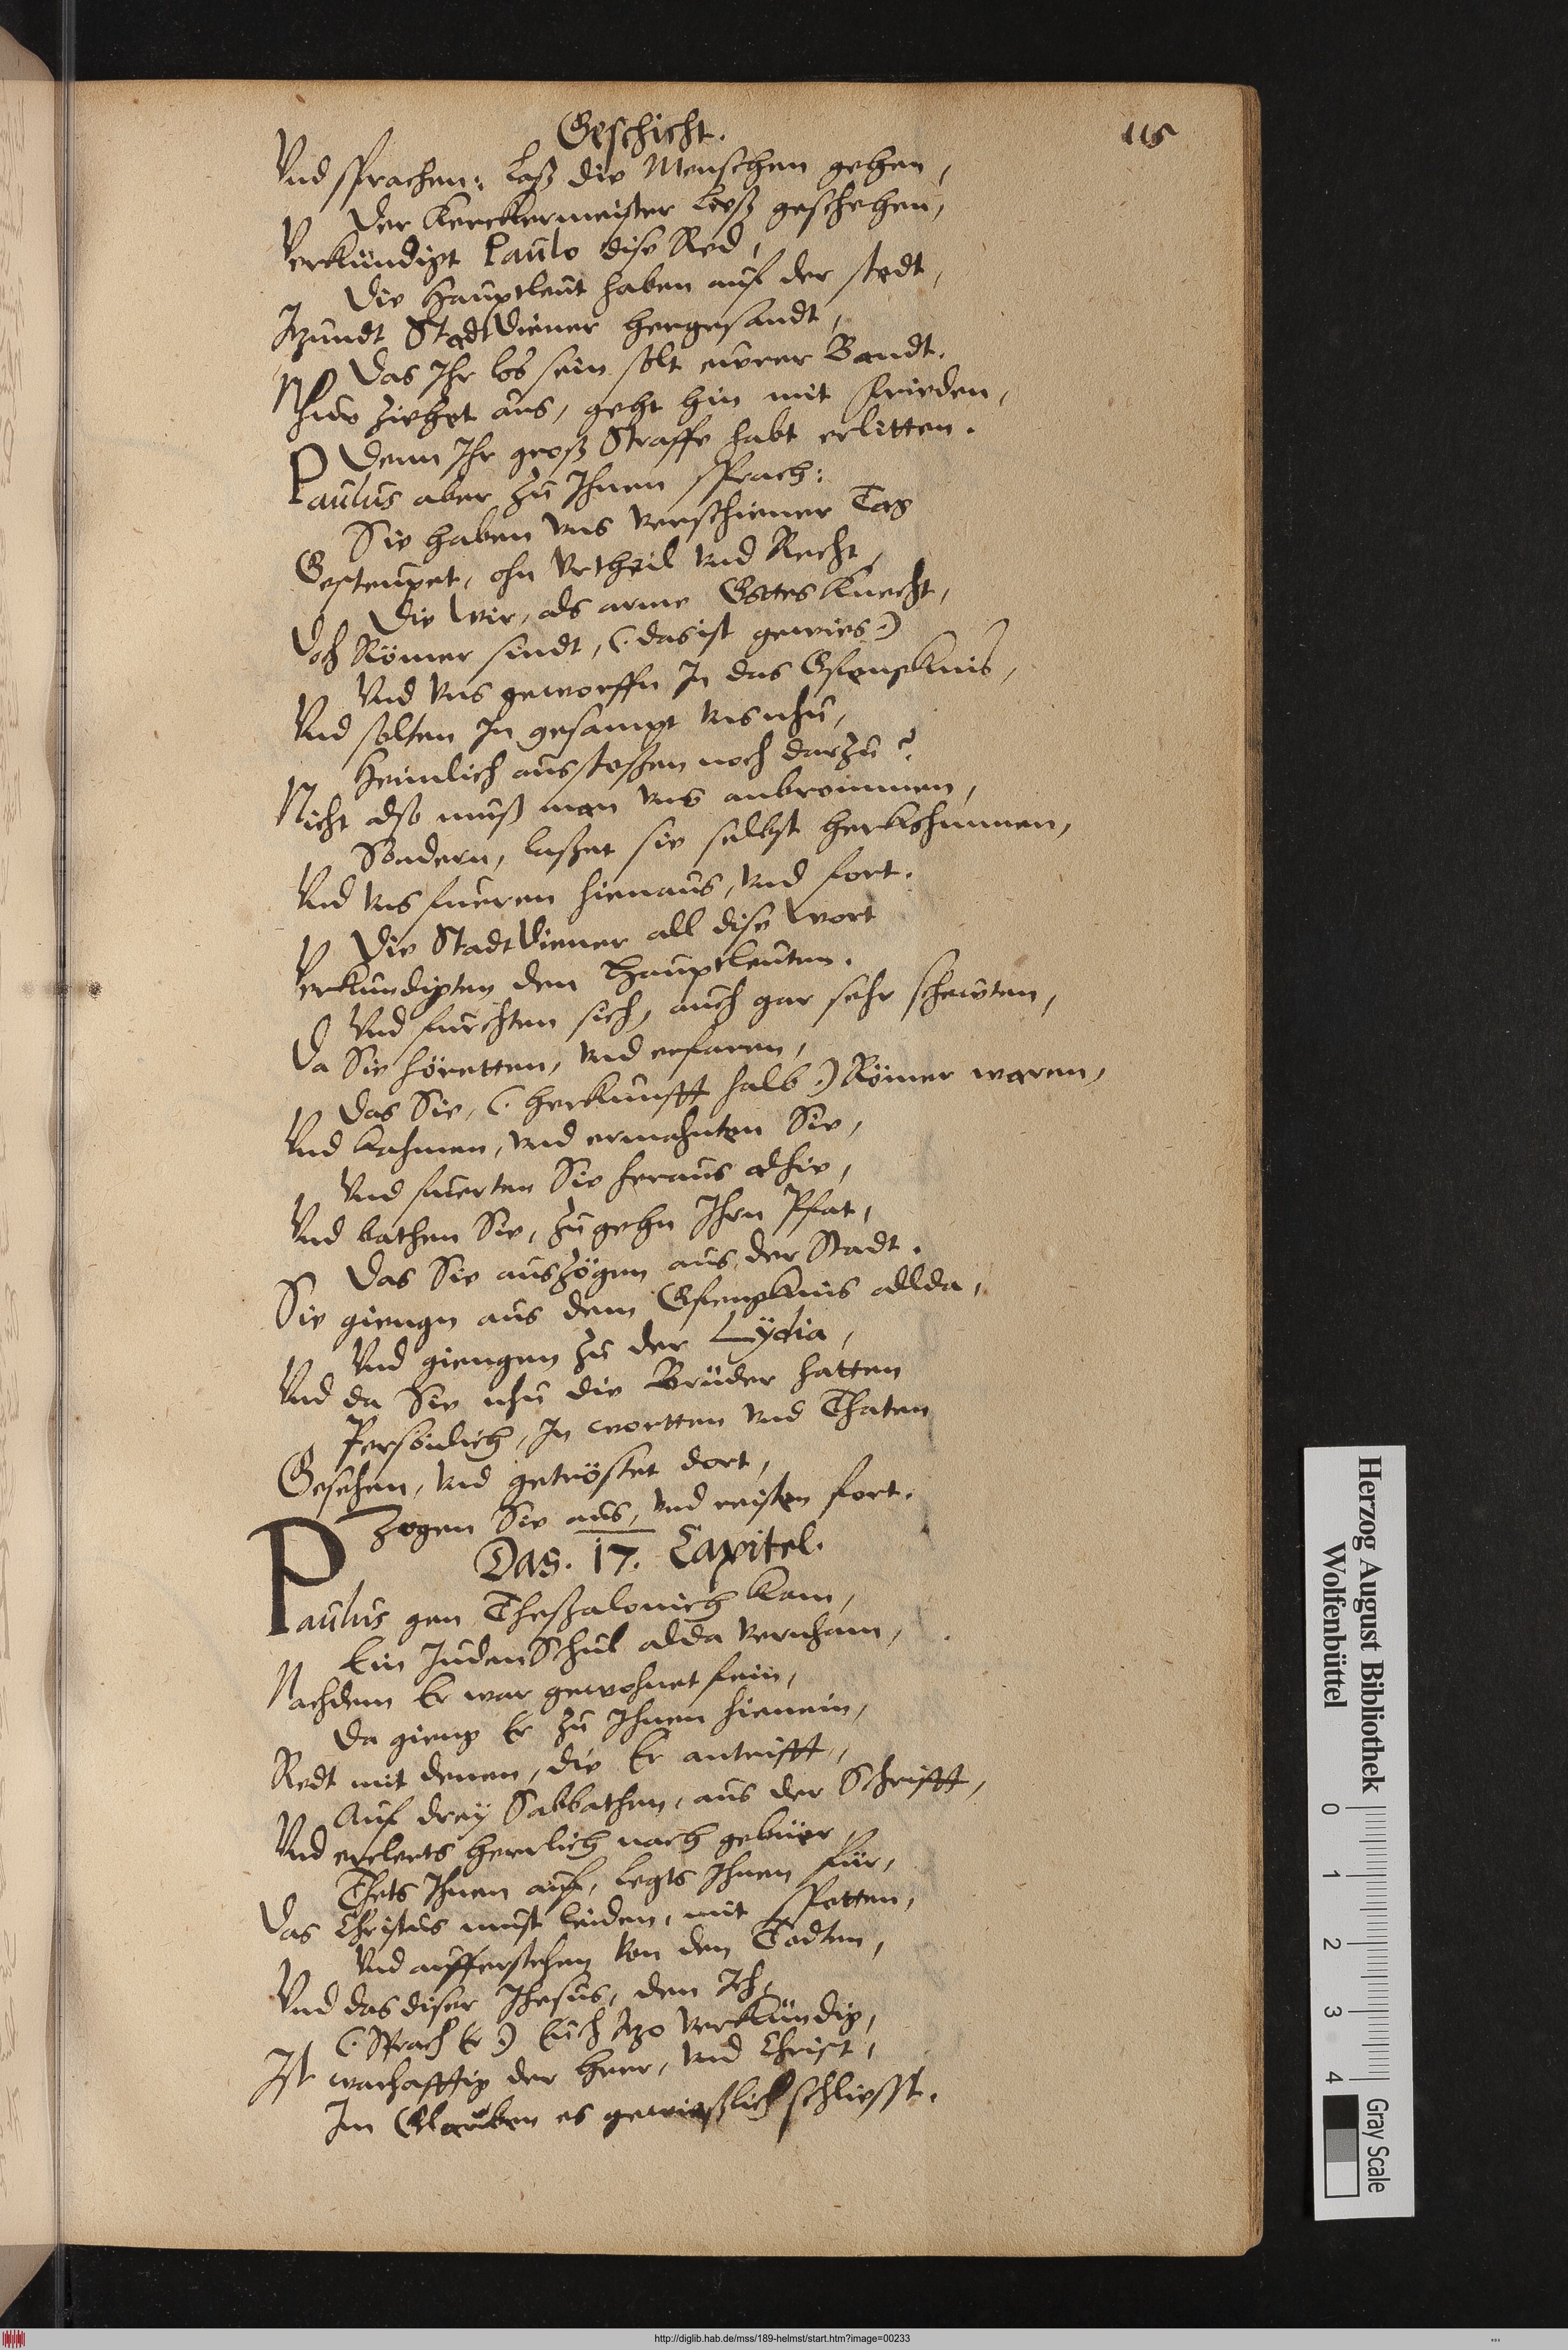 Geschicht.
115
Vnd sprachen: Laß die Menschen gehen,
Der Kerckermeister ließ geschehen,
Verkündigt Paulo dise Red,
Die Hauptleut haben auf der stedt,
Itzundt StadtDiener hergesandt,
Das Ihr los sein solt eurer Bandt.
Nhue ziehet aus, geht hin mit frieden,
Denn Ihr groß Straffe habt erlitten.
Paulus aber zu Ihnen sprach:
Sie haben vns verschiener Tag
Gesteupet, ohn Vrtheil vnd Recht,
Die wir, als arme Gottes Knecht,
Doch Römer sindt, (das ist gewies)
Vnd vns geworffn In das Gfengknis,
Vnd solten In gesampt vns nhu,
Heimlich ausstoßen noch darzu?
Nicht also muß man vns
Sondern, laßet sie selbst herkohmmen,
Vnd vns fueren hienaus, vnd fort.
Die StadtDiener all dise wort
Verkundigten den Hauptleuten.
Vnd furchten sich, auch gar sehr scheuten,
Da Sie höretten, vnd erfaren,
Das Sie, (herkunfft halb) Römer waren,
Vnd kahmen, vnd ermahnten Sie,
Vnd fuerten Sie heraus alhie,
Vnd bathen Sie, zu gehn Ihrn Pfat,
Das Sie auszögen aus der Stadt.
Sie giengn aus dem Gfengknis allda,
Vnd giengen zu der Lÿdia,
Vnd da Sie nhu die Brüder hatten
Persönlich, In wortten vnd Thaten
Gesehen, vnd getröstet dort,
Zogen Sie aus, vnd reisten fort.
Das. 17. Capitel.
Paulus gen Theßalonich kam,
Ein JudenSchul alda vernham,
Nachdem Er war gewohnet fein,
Da gieng Er zu Ihnen hienein,
Redt mit denen, die Er antrifft,
Auf dreÿ Sabbathen, aus der Schrifft,
Vnd erclerts herrlich nach gebüer,
Thets Ihnen auf, legts Ihnen für,
Das Christus must leiden, mit spotten,
Vnd aufferstehen von den Todten,
Vnd das diser Jhesus, den Ich,
(Sprach Er) Euch itzo verkündig,
Ist warhafftig der Herr, vnd Christ,
Im Glauben es gewießlich schliesst.
Herzog August Bibliothek
Wolfenbüttel
0 1 2 3 4
Gray Scale
http://diglib.hab.de/mss/189-helmst/start.htm?image=00233